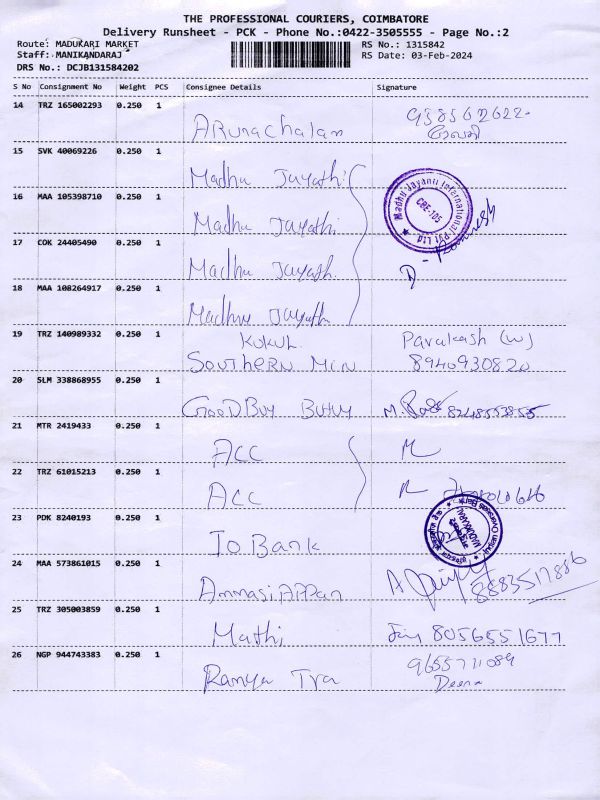 THE PROFESSIONAL COURIERS, COIMBATORE
Delivery Runsheet - PCK - Phone No.:0422-3505555 - Page No.:2
Route: MADUKARI MARKET
Staff: MANIKANDARAJ
DRS No.: DCJB131584202
RS No.: 1315842
RS Date: 03-Feb-2024
S No Consignment No Weight PCS Consignee Details Signature
14 TRZ 165002293 0.250 1 Arunachalam
15 SVK 40069226 0.250 1 Madhu Jayathi
16 MAA 105398710 0.250 1 Madhu Jayathi
Madhu Jayanti International Pvt Ltd
CBE-105
17 COK 24405490 0.250 1 Madhu Jayath
18 MAA 108264917 0.250 1 Madhu Jayath
19 TRZ 140989332 0.250 1 KOKUL Parakash (W)
SOUTHERN MIN 8940930820
20 SLM 338868955 0.250 1 GOODBUY M.
21 MTR 2419433 0.250 1 ACC
22 TRZ 61015213 0.250 1 ACC
23 PDK 8240193 0.250 1 Io Bank
24 MAA 573861015 0.250 1 AmmasiAPPan 8883517886
25 TRZ 305003859 0.250 1 Mathi 8056551677
26 NGP 944743383 0.250 1 Ramya Tra
Deena